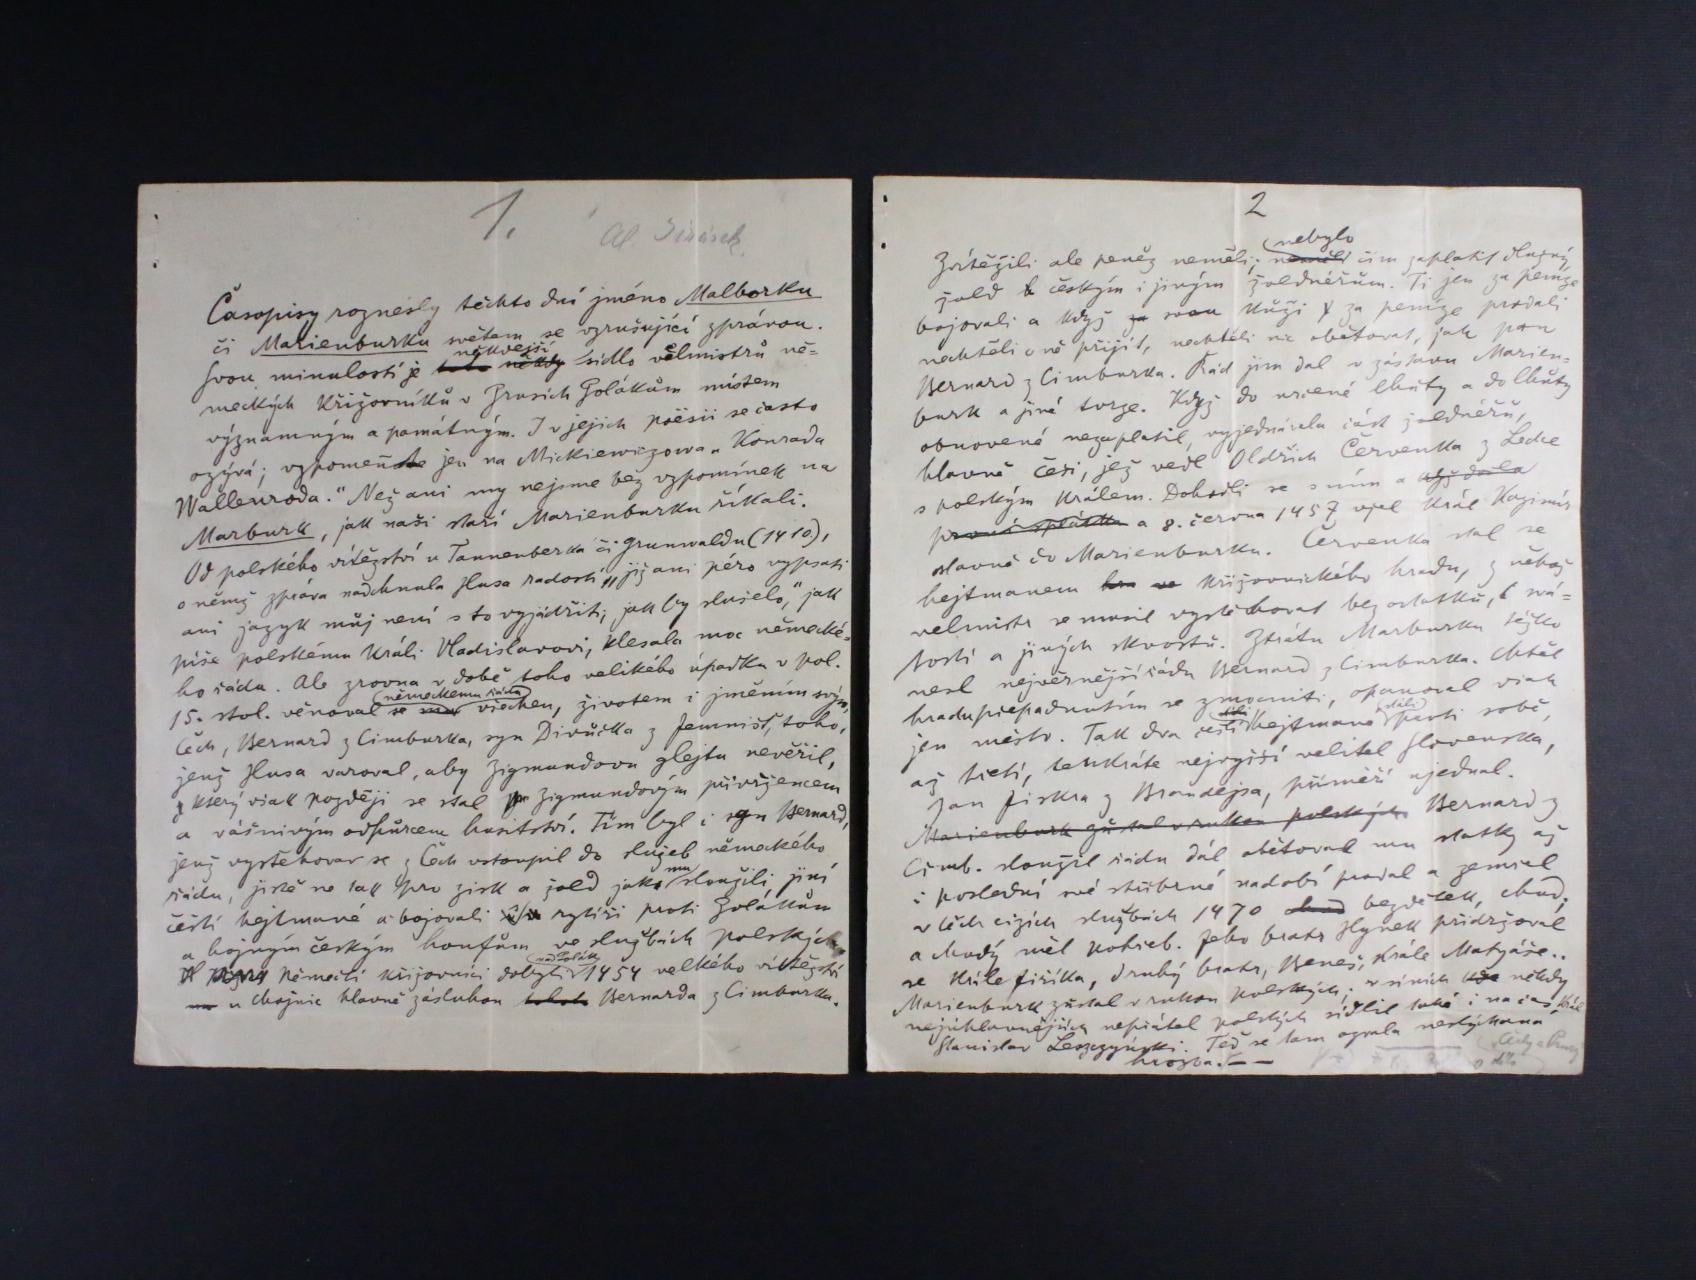 1.
Al. Jirásek
Časopisy roznesly těchto dní jméno Malborku
či Marienburku světem se vzrušující zprávou.
Svou minulostí je někdejší sídlo velmistrů ně-
meckých křižovníků v Prusích Polákům místem
významným a památným. I v jejich poësii se často
ozývá; vzpomeňte jen na Mickiewiczowa „Konrada
Wallenroda.“ Než ani my nejsme bez vzpomínek na
Marburk, jak naši staří Marienburku říkali.
Od polského vítězství u Tannenberka či Grunwaldu (1410),
o němž zpráva nadchnula Husa radostí „již ani péro vypsati
ani jazyk můj není s to vyjádřiti, jak by slušelo,“ jak
píše polskému králi Vladislavovi, klesala moc německé-
ho řádu. Ale zrovna v době toho velikého úpadku v pol.
15. stol. věnoval se německému řádu všechen, životem i jměním svým,
Čech, Bernard z Cimburka, syn Divůčka z Jemništ, toho,
jenž Husa varoval, aby Zigmundovu glejtu nevěřil,
který však později se stal Zigmundovým přívržencem
a vášnivým odpůrcem husitství. Tím byl i syn Bernard,
jenž vystěhovav se z Čech vstoupil do služeb německého
řádu, jistě ne tak pro zisk a žold jako mu sloužili jiní
čeští hejtmané a bojovali rytíři proti Polákům
a bojným českým houfům ve službách polských.
Němečtí křižovníci dobyli nad Polák 1454 velkého vítězství
u Chojnic hlavně zásluhou Bernarda z Cimburka.
2
Zvítězili ale peněz neměli; nebylo čím zaplatit dlužný
žold českým i jiným žoldnéřům. Ti jen za peníze
bojovali a když svou kůži za peníze prodali
nechtěli o ně přijít, nechtěli nic obětovat, jak pan
Bernard z Cimburka. Řád jim dal v zástavu Marien-
burk a jiné tvrze. Když do určené lhůty a do lhůty
obnovené nezaplatil, vyjednávala část žoldnéřů,
hlavně Češi, jež vedl Oldřich Červenka z Ledce
s polským králem. Dohodli se s ním a když dala
první splátka a 8. června 1457 vjel král Kazimír
slavně do Marienburku. Červenka stal se
hejtmanem křižovnického hradu, z něhož
velmistr se musil vystěhovat bez ostatků, svá-
tostí a jiných skvostů. Ztrátu Marburku těžko
nesl nejvěrnější řádu Bernard z Cimburka. Chtěl
hradu přepadnutím se zmocniti, opanoval však
jen město. Tak dva čeští hejtmané stáli proti sobě,
až třetí, tenkráte nejvyšší velitel Slovenska,
Jan Jiskra z Brandejsa, příměří ujednal.
Marienburk zůstal v rukou polských. Bernard z
Cimb. sloužil řádu dál obětoval mu statky až
i poslední své stříbrné nádobí prodal a zemřel
v těch cizích službách 1470 bezdětek, chud,
a chudý měl pohřeb. Jeho bratr Hynek přidržoval
se krále Jiříka, druhý bratr, Beneš, krále Matyáše..
Marienburk zůstal v rukou polských; v síních někdy
nejúhlavnějších nepřátel polských sídlil také i na čas král
Stanislav Leszczyński. Teď se tam ozvala neslýchaná
hrozba. — —